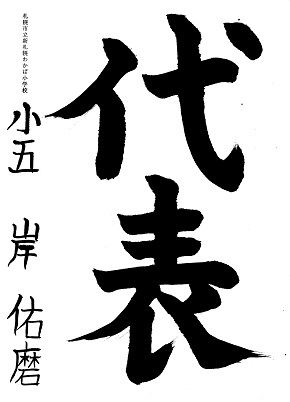 代表
札幌市立新札幌わかば小学校
小五 岸 佑磨